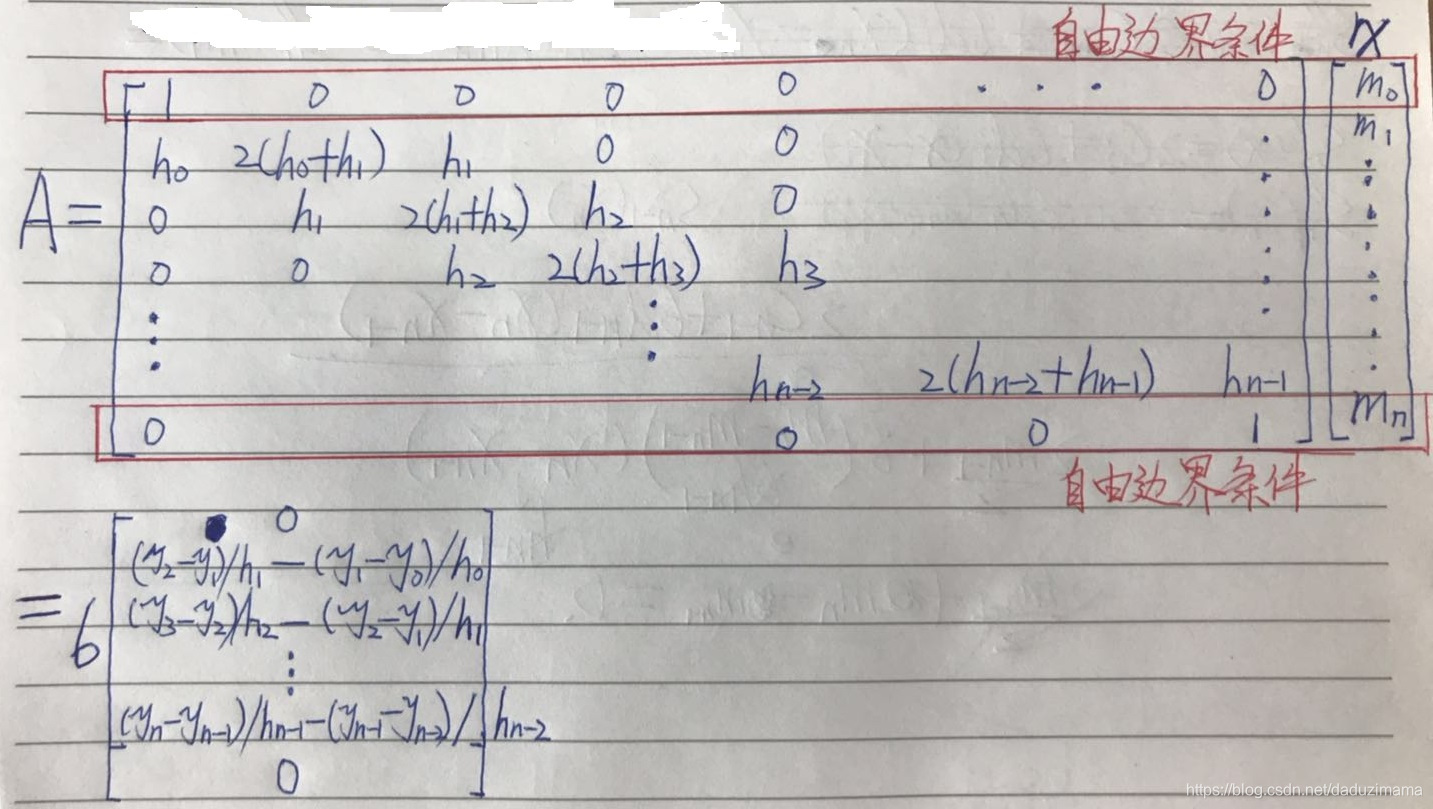 自由边界条件 x
1 0 0 0 0 . . . 0 m₀
h₀ 2(h₀+h₁) h₁ 0 0 . m₁
A= 0 h₁ 2(h₁+h₂) h₂ 0 . .
0 0 h₂ 2(h₂+h₃) h₃ . .
⋮ ⋮ ⋮ ⋮
hₙ₋₂ 2(hₙ₋₂+hₙ₋₁) hₙ₋₁
0 0 0 1 mₙ
自由边界条件
0
(y₂-y₁)/h₁-(y₁-y₀)/h₀
= 6 (y₃-y₂)/h₂-(y₂-y₁)/h₁
⋮
(yₙ-yₙ₋₁)/hₙ₋₁-(yₙ₋₁-yₙ₋₂)/hₙ₋₂
0
https://blog.csdn.net/daduzimama